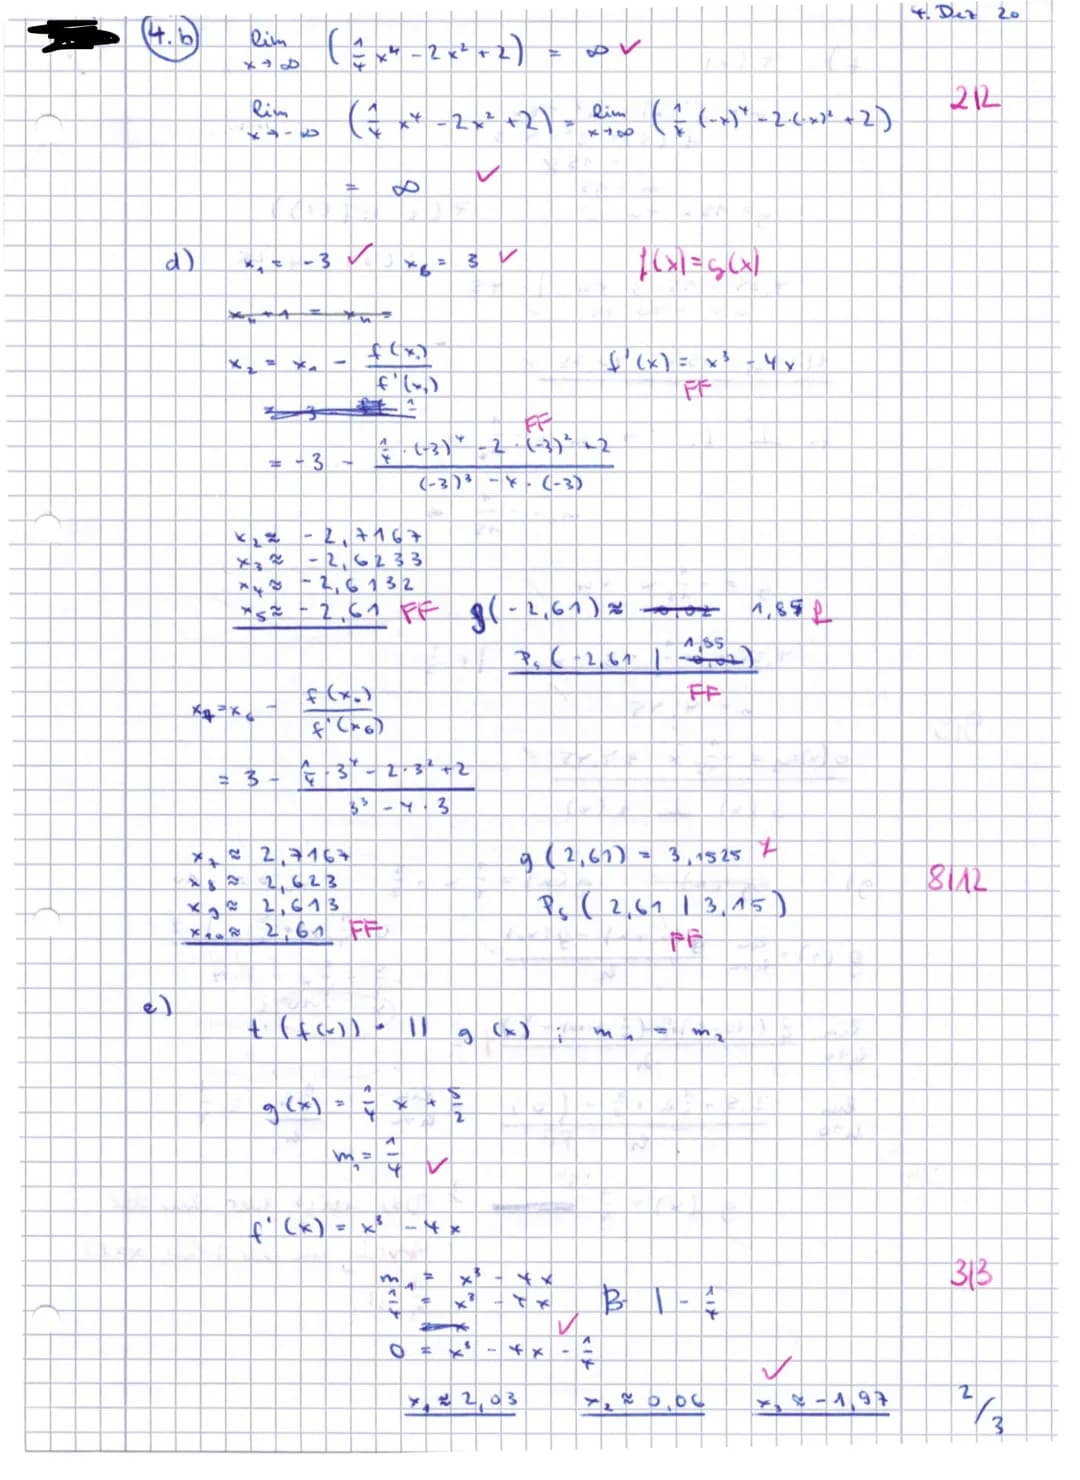 4. Dez 20
4.b) lim x→∞ (1/4 x⁴ - 2x² + 2) = ∞ ✓
lim x→-∞ (1/4 x⁴ - 2x² + 2) = lim x→∞ (1/4 (-x)⁴ - 2·(-x)² + 2) 2/2
= ∞ ✓
d) x₁ = -3 ✓ x₆ = 3 ✓ f(x) = g(x)
xₙ+1 = xₙ =
x₂ = x₁ - f(x₁)/f'(x₁) f'(x) = x³ - 4x
FF
FF
= -3 - (1/4 · (-3)⁴ - 2 · (-3)² + 2)/((-3)³ - 4 · (-3))
x₂ ≈ -2,7167
x₃ ≈ -2,6233
x₄ ≈ -2,6132
x₅ ≈ -2,61 FF g(-2,61) ≈ 0,02 1,85 f
P₅ (-2,61 | 1,85)
FF
x₇ = x₆ - f(x₆)/f'(x₆)
= 3 - (1/4 · 3⁴ - 2 · 3² + 2)/(3³ - 4 · 3)
x₇ ≈ 2,7167 g(2,61) = 3,1525
x₈ ≈ 2,623 8/12
x₉ ≈ 2,613 P₅ (2,61 | 3,15)
x₁₀ ≈ 2,61 FF FF
e)
t(f(x)) || g(x) ; m₁ = m₂
g(x) = 1/4 x + 5/2
m₁ = 1/4 ✓
f'(x) = x³ - 4x
m₁ = x³ - 4x 3/3
1/4 = x³ - 4x | - 1/4
✓
0 = x³ - 4x - 1/4
✓
x₁ ≈ 2,03 x₂ ≈ 0,06 x₃ ≈ -1,97 2/3